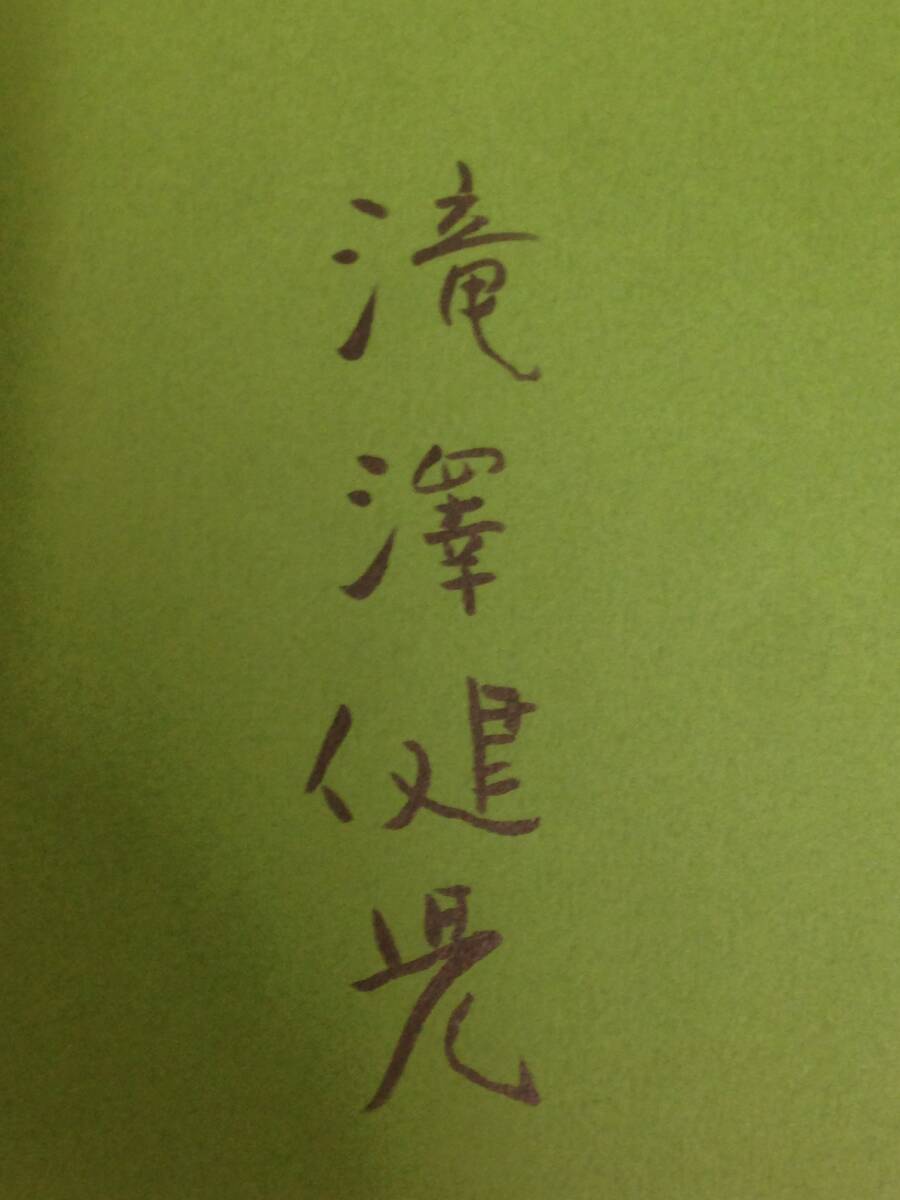 滝澤健児